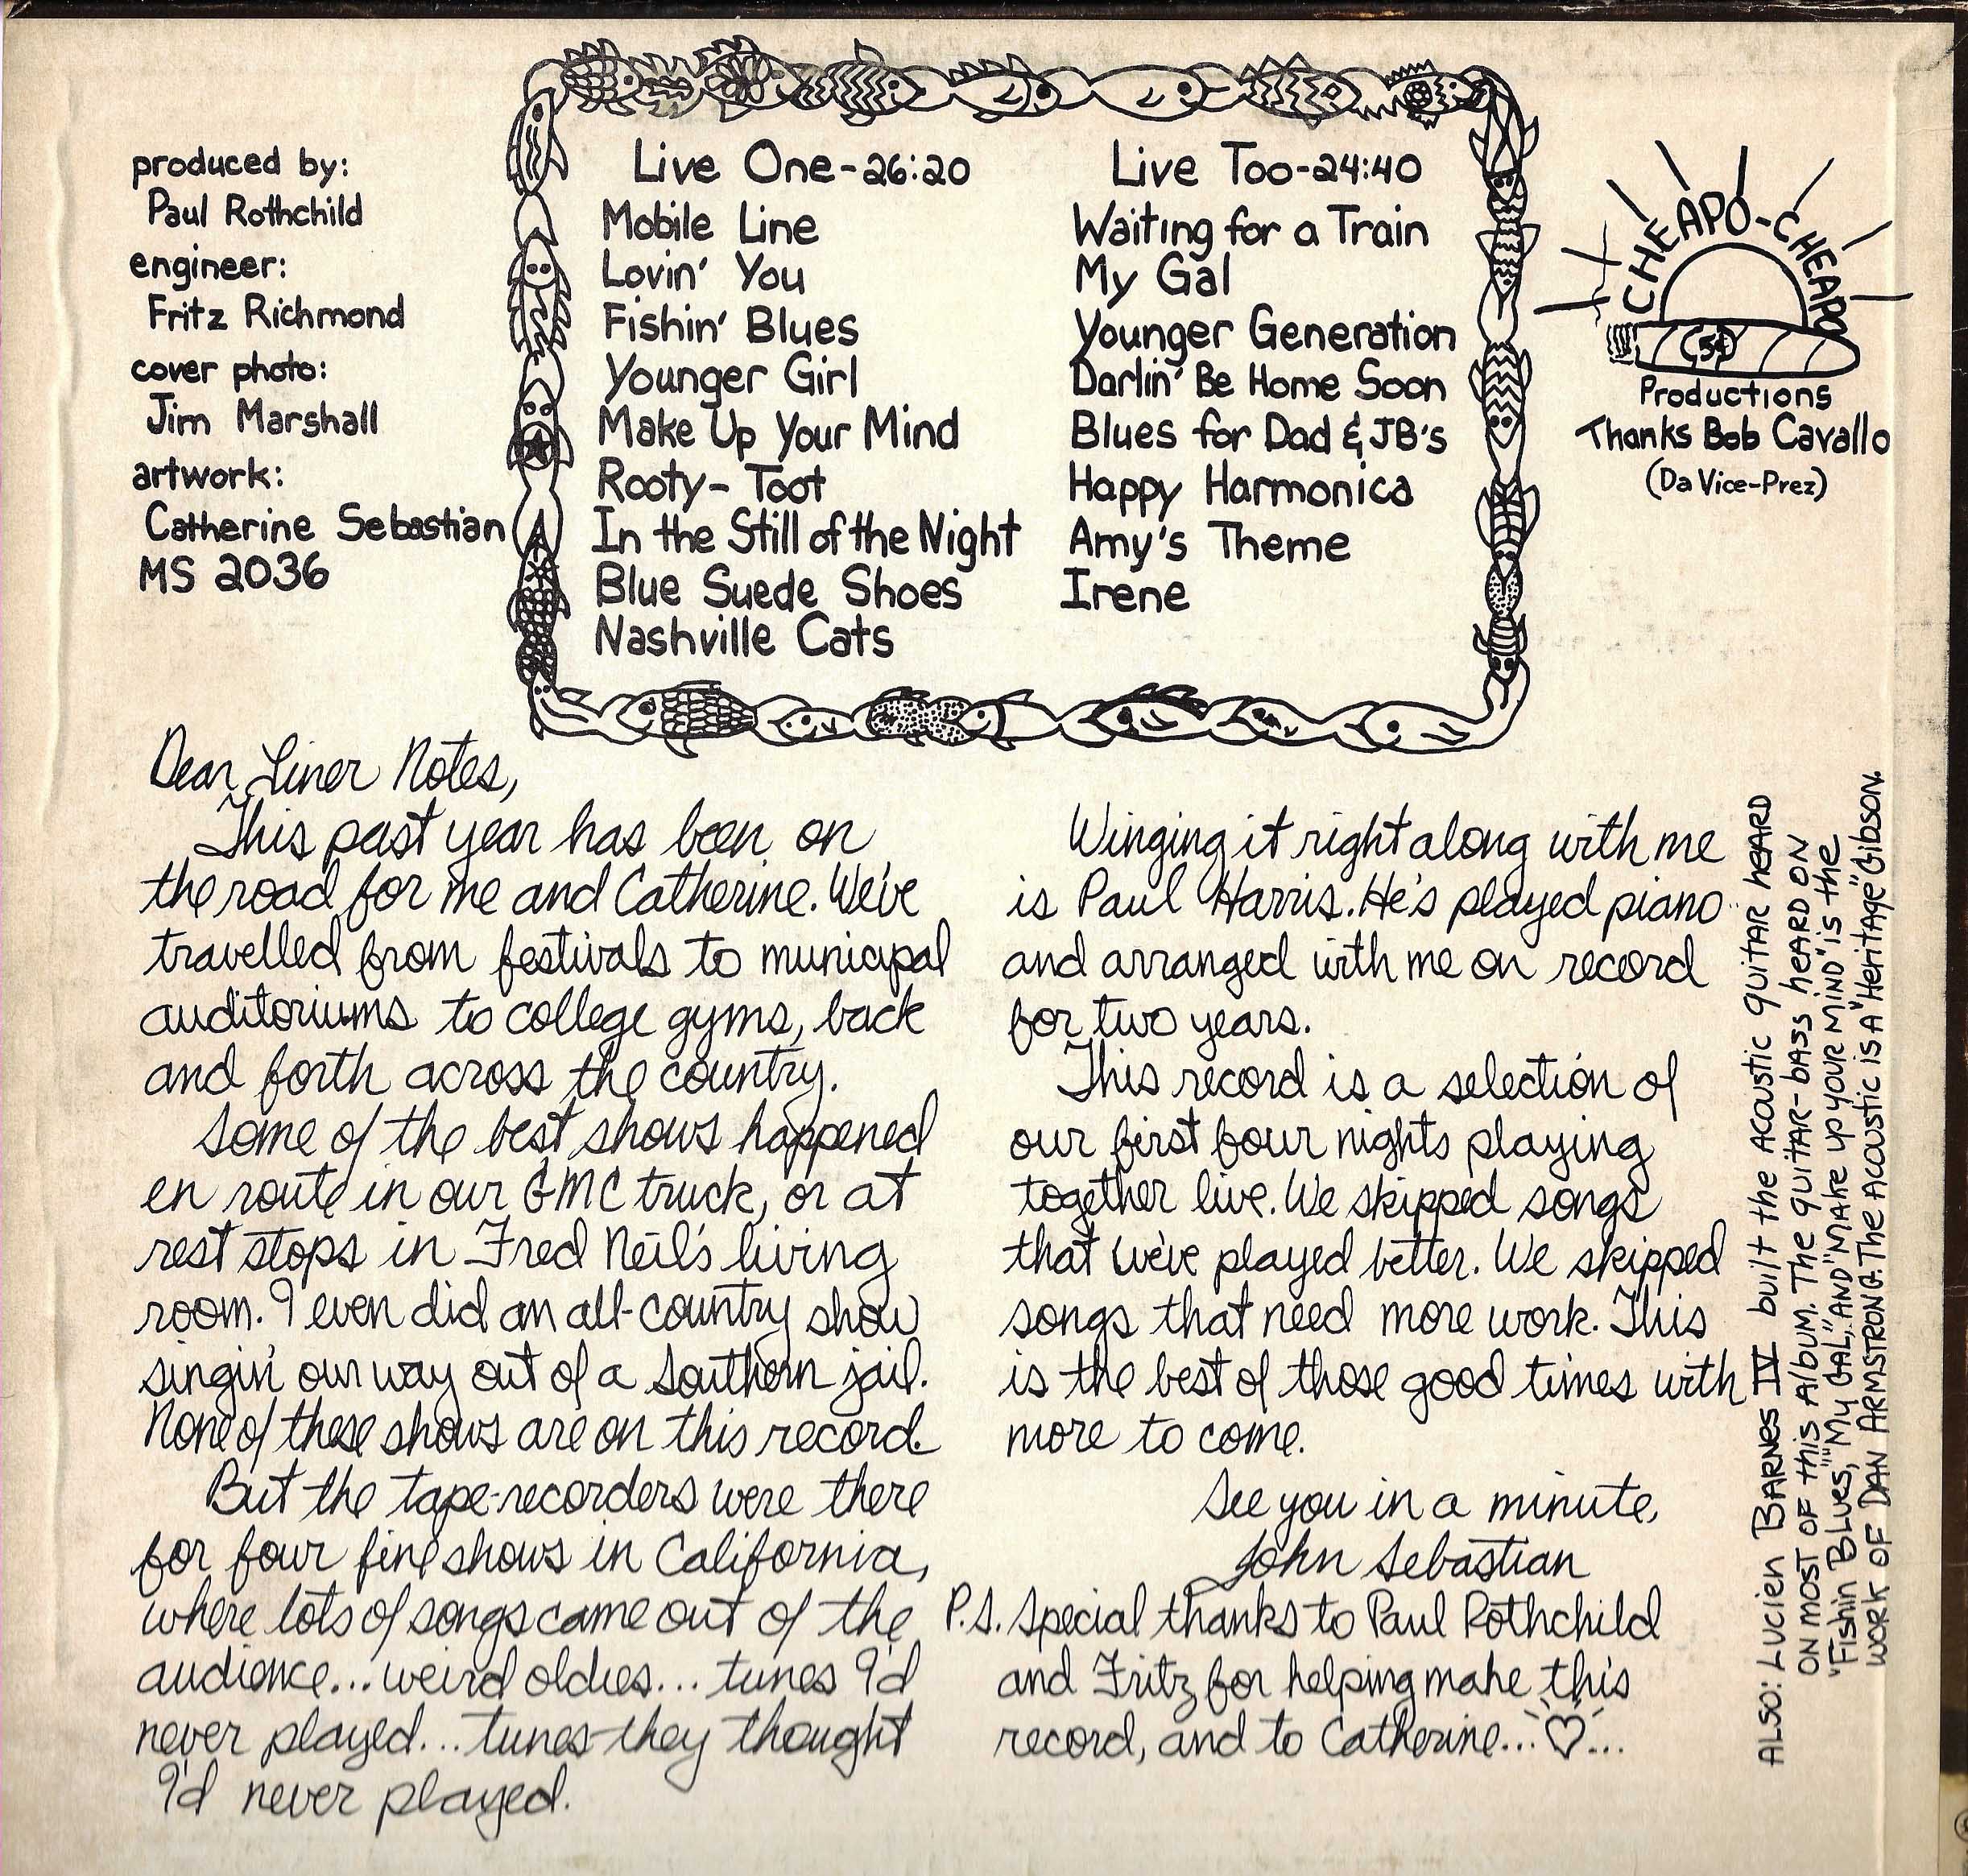 produced by:
Paul Rothchild
engineer:
Fritz Richmond
cover photo:
Jim Marshall
artwork:
Catherine Sebastian
MS 2036
Live One-26:20
Mobile Line
Lovin' You
Fishin' Blues
Younger Girl
Make Up Your Mind
Rooty-Toot
In the Still of the Night
Blue Suede Shoes
Nashville Cats
Live Too-24:40
Waiting for a Train
My Gal
Younger Generation
Darlin' Be Home Soon
Blues for Dad & JB's
Happy Harmonica
Amy's Theme
Irene
CHEAPO-CHEAPO
5¢
Productions
Thanks Bob Cavallo
(Da Vice-Prez)
Dear Liner Notes,
This past year has been on
the road for me and Catherine. We've
travelled from festivals to municipal
auditoriums to college gyms, back
and forth across the country.
Some of the best shows happened
en route in our GMC truck, or at
rest stops in Fred Neil's living
room. I even did an all-country show
singin' our way out of a Southern jail.
None of these shows are on this record.
But the tape-recorders were there
for four fine shows in California,
where lots of songs came out of the
audience... weird oldies... tunes I'd
never played... tunes they thought
I'd never played.
Winging it right along with me
is Paul Harris. He's played piano
and arranged with me on record
for two years.
This record is a selection of
our first four nights playing
together live. We skipped songs
that we've played better. We skipped
songs that need more work. This
is the best of those good times with
more to come.
See you in a minute,
John Sebastian
P.S. Special thanks to Paul Rothchild
and Fritz for helping make this
record, and to Catherine...♡...
ALSO: Lucien BARNES IV built the Acoustic guitar heard
on most of this album. The guitar-bass heard on
"Fishin Blues," "My Gal," and "Make up your mind" is the
work of Dan Armstrong. The Acoustic is a "Heritage" Gibson.